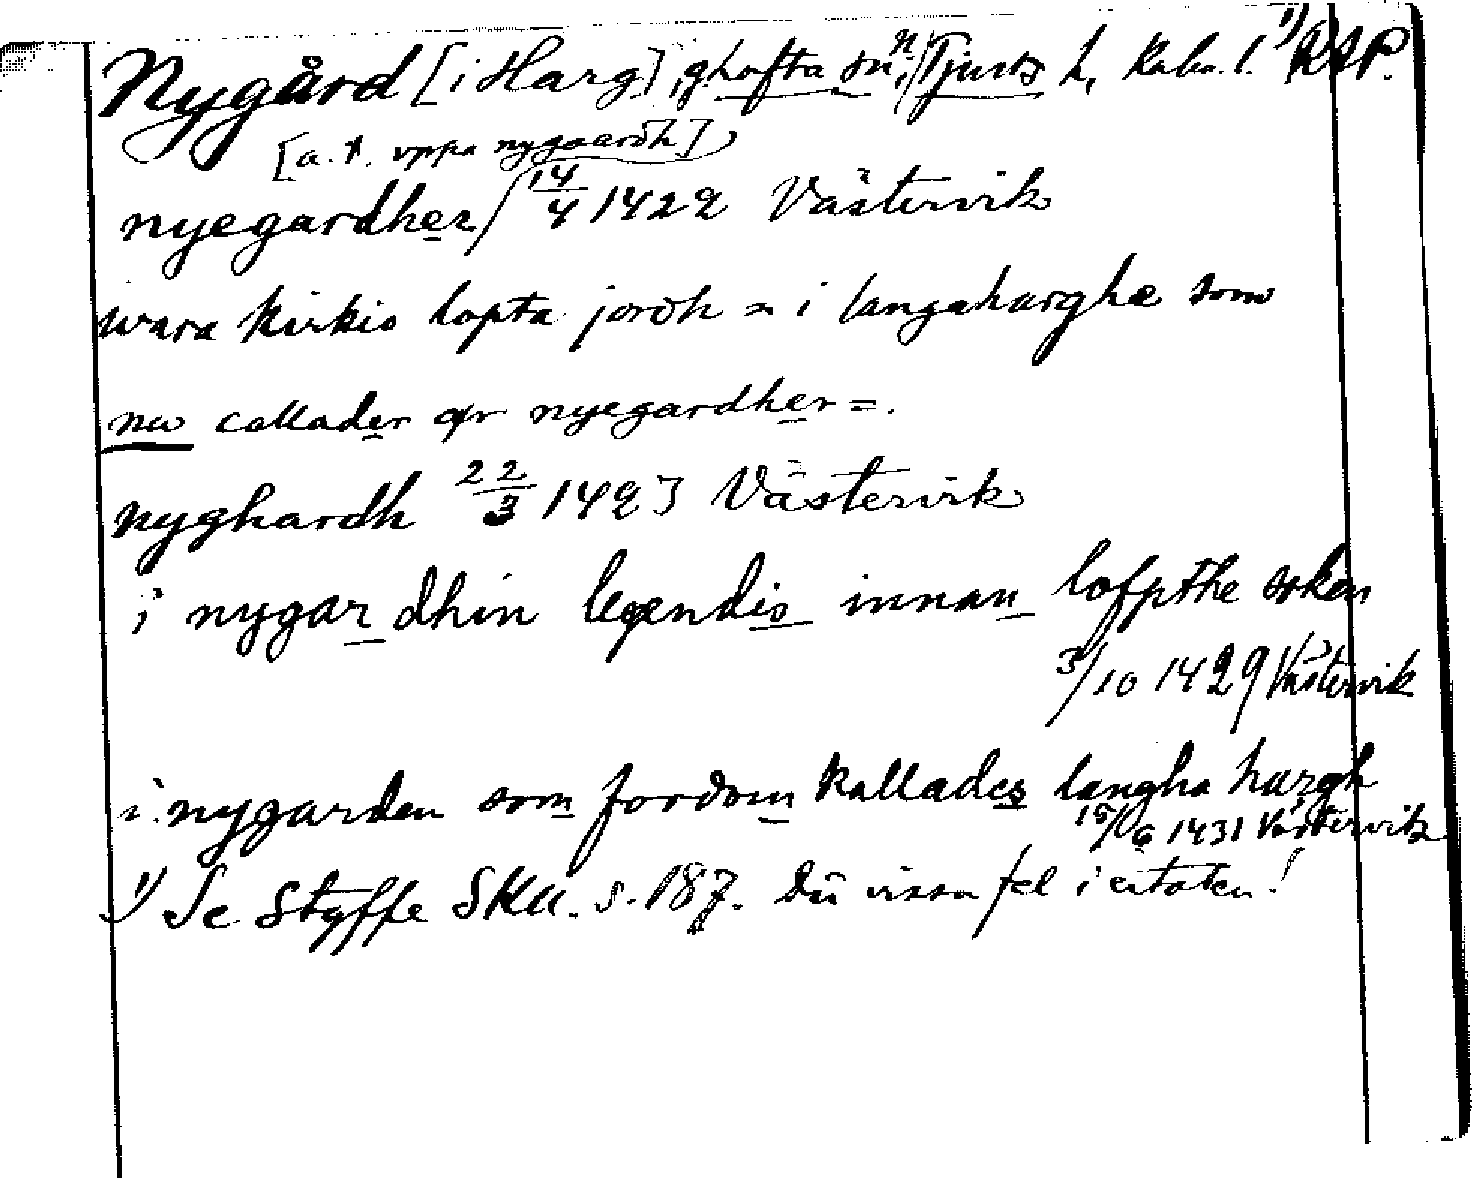 Nygård [i Harg], ghofta sn, n Tjusts h, Kalm. l. 1) RAP.
[a. t. uppa nygaardh]
nyegardher 14/4 1422 Västervik
wara kirkio lopta jordh = i langaharghe som
nw callader ær nyegardher =.
nyghardh 22/3 1423 Västervik
i nygardhin legendis innan lofpthe sokn
3/10 1429 Västervik
i nygarden som fordom kallades langha hargh
15/6 1431 Västervik
1) Se Styffe SKU. s. 187. där vissa fel i citaten!